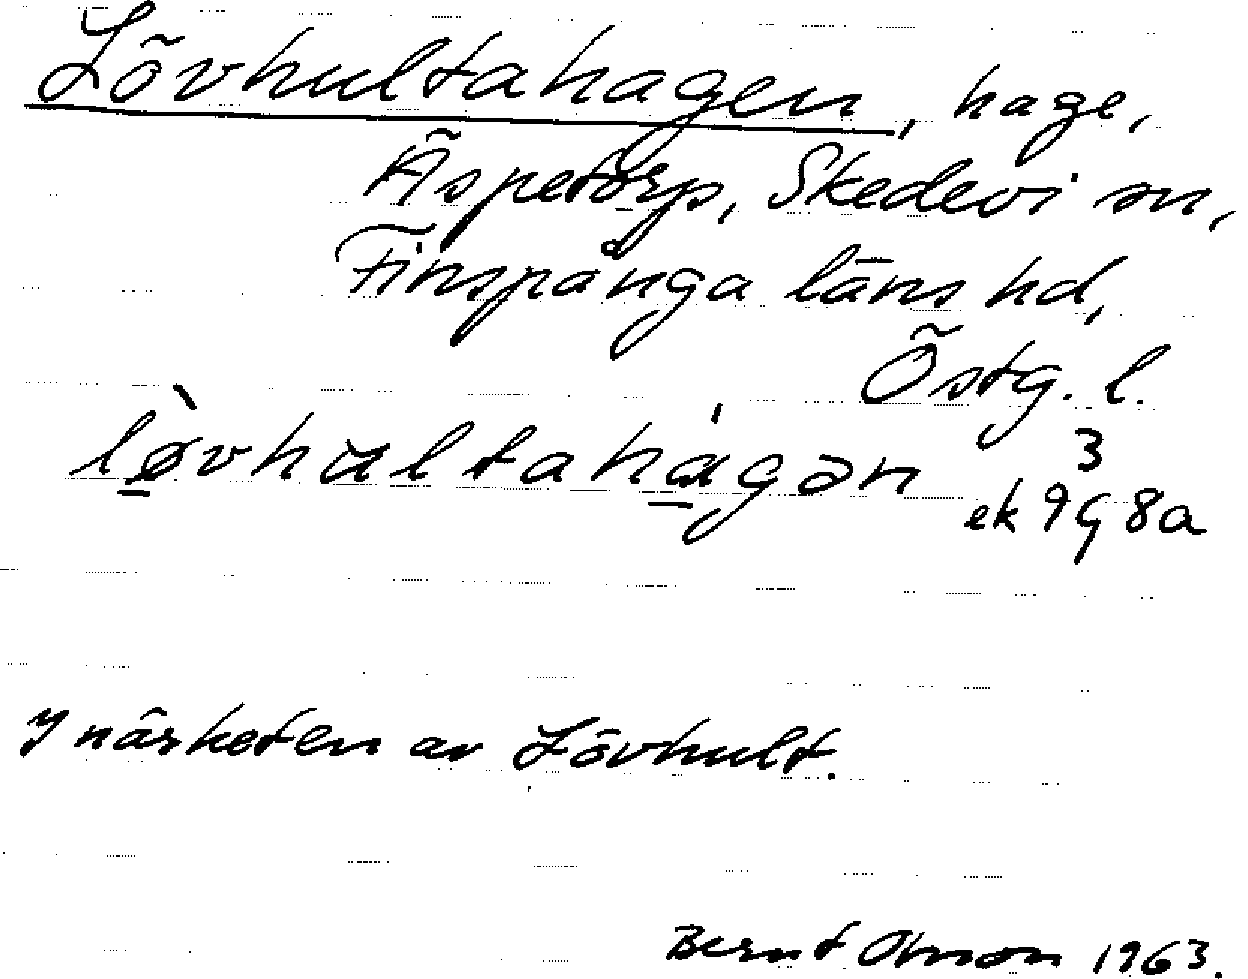 Lövhultahagen, hage,
Äspetorp, Skedevi sn,
Finspånga läns hd,
Östg. l.
lø̱̀vhultahá̱gən
3
ek 9G8a
I närheten av Lövhult.
Bernt Olsson 1963.